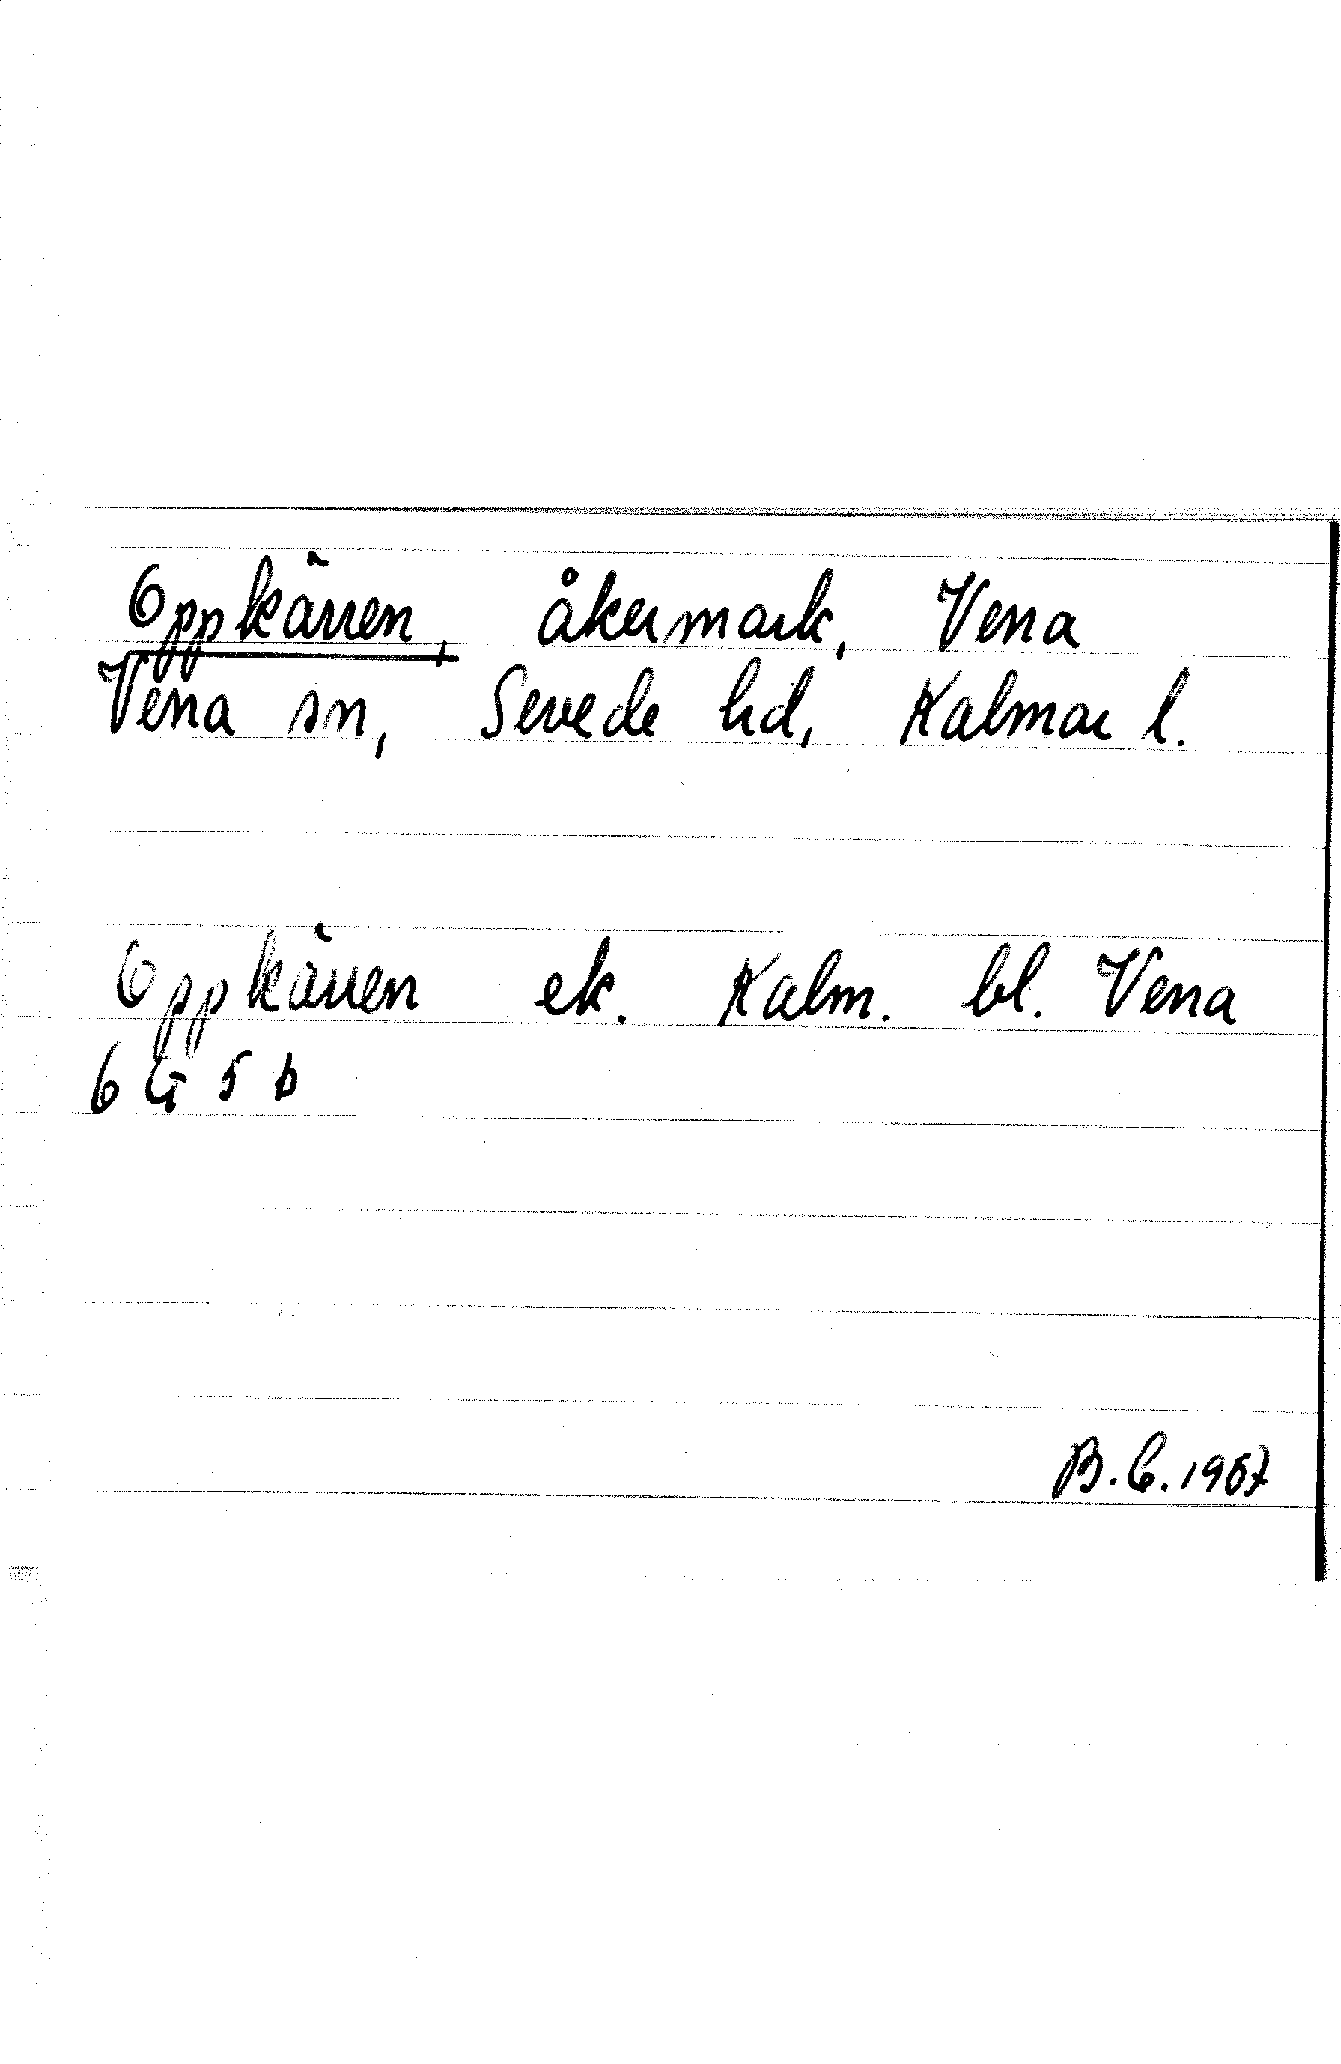 Oppkärren, åkermark, Vena
Vena sn, Sevede hd, Kalmar l.
Oppkärren ek. Kalm. bl. Vena
6 G 5 b
B.C. 1967